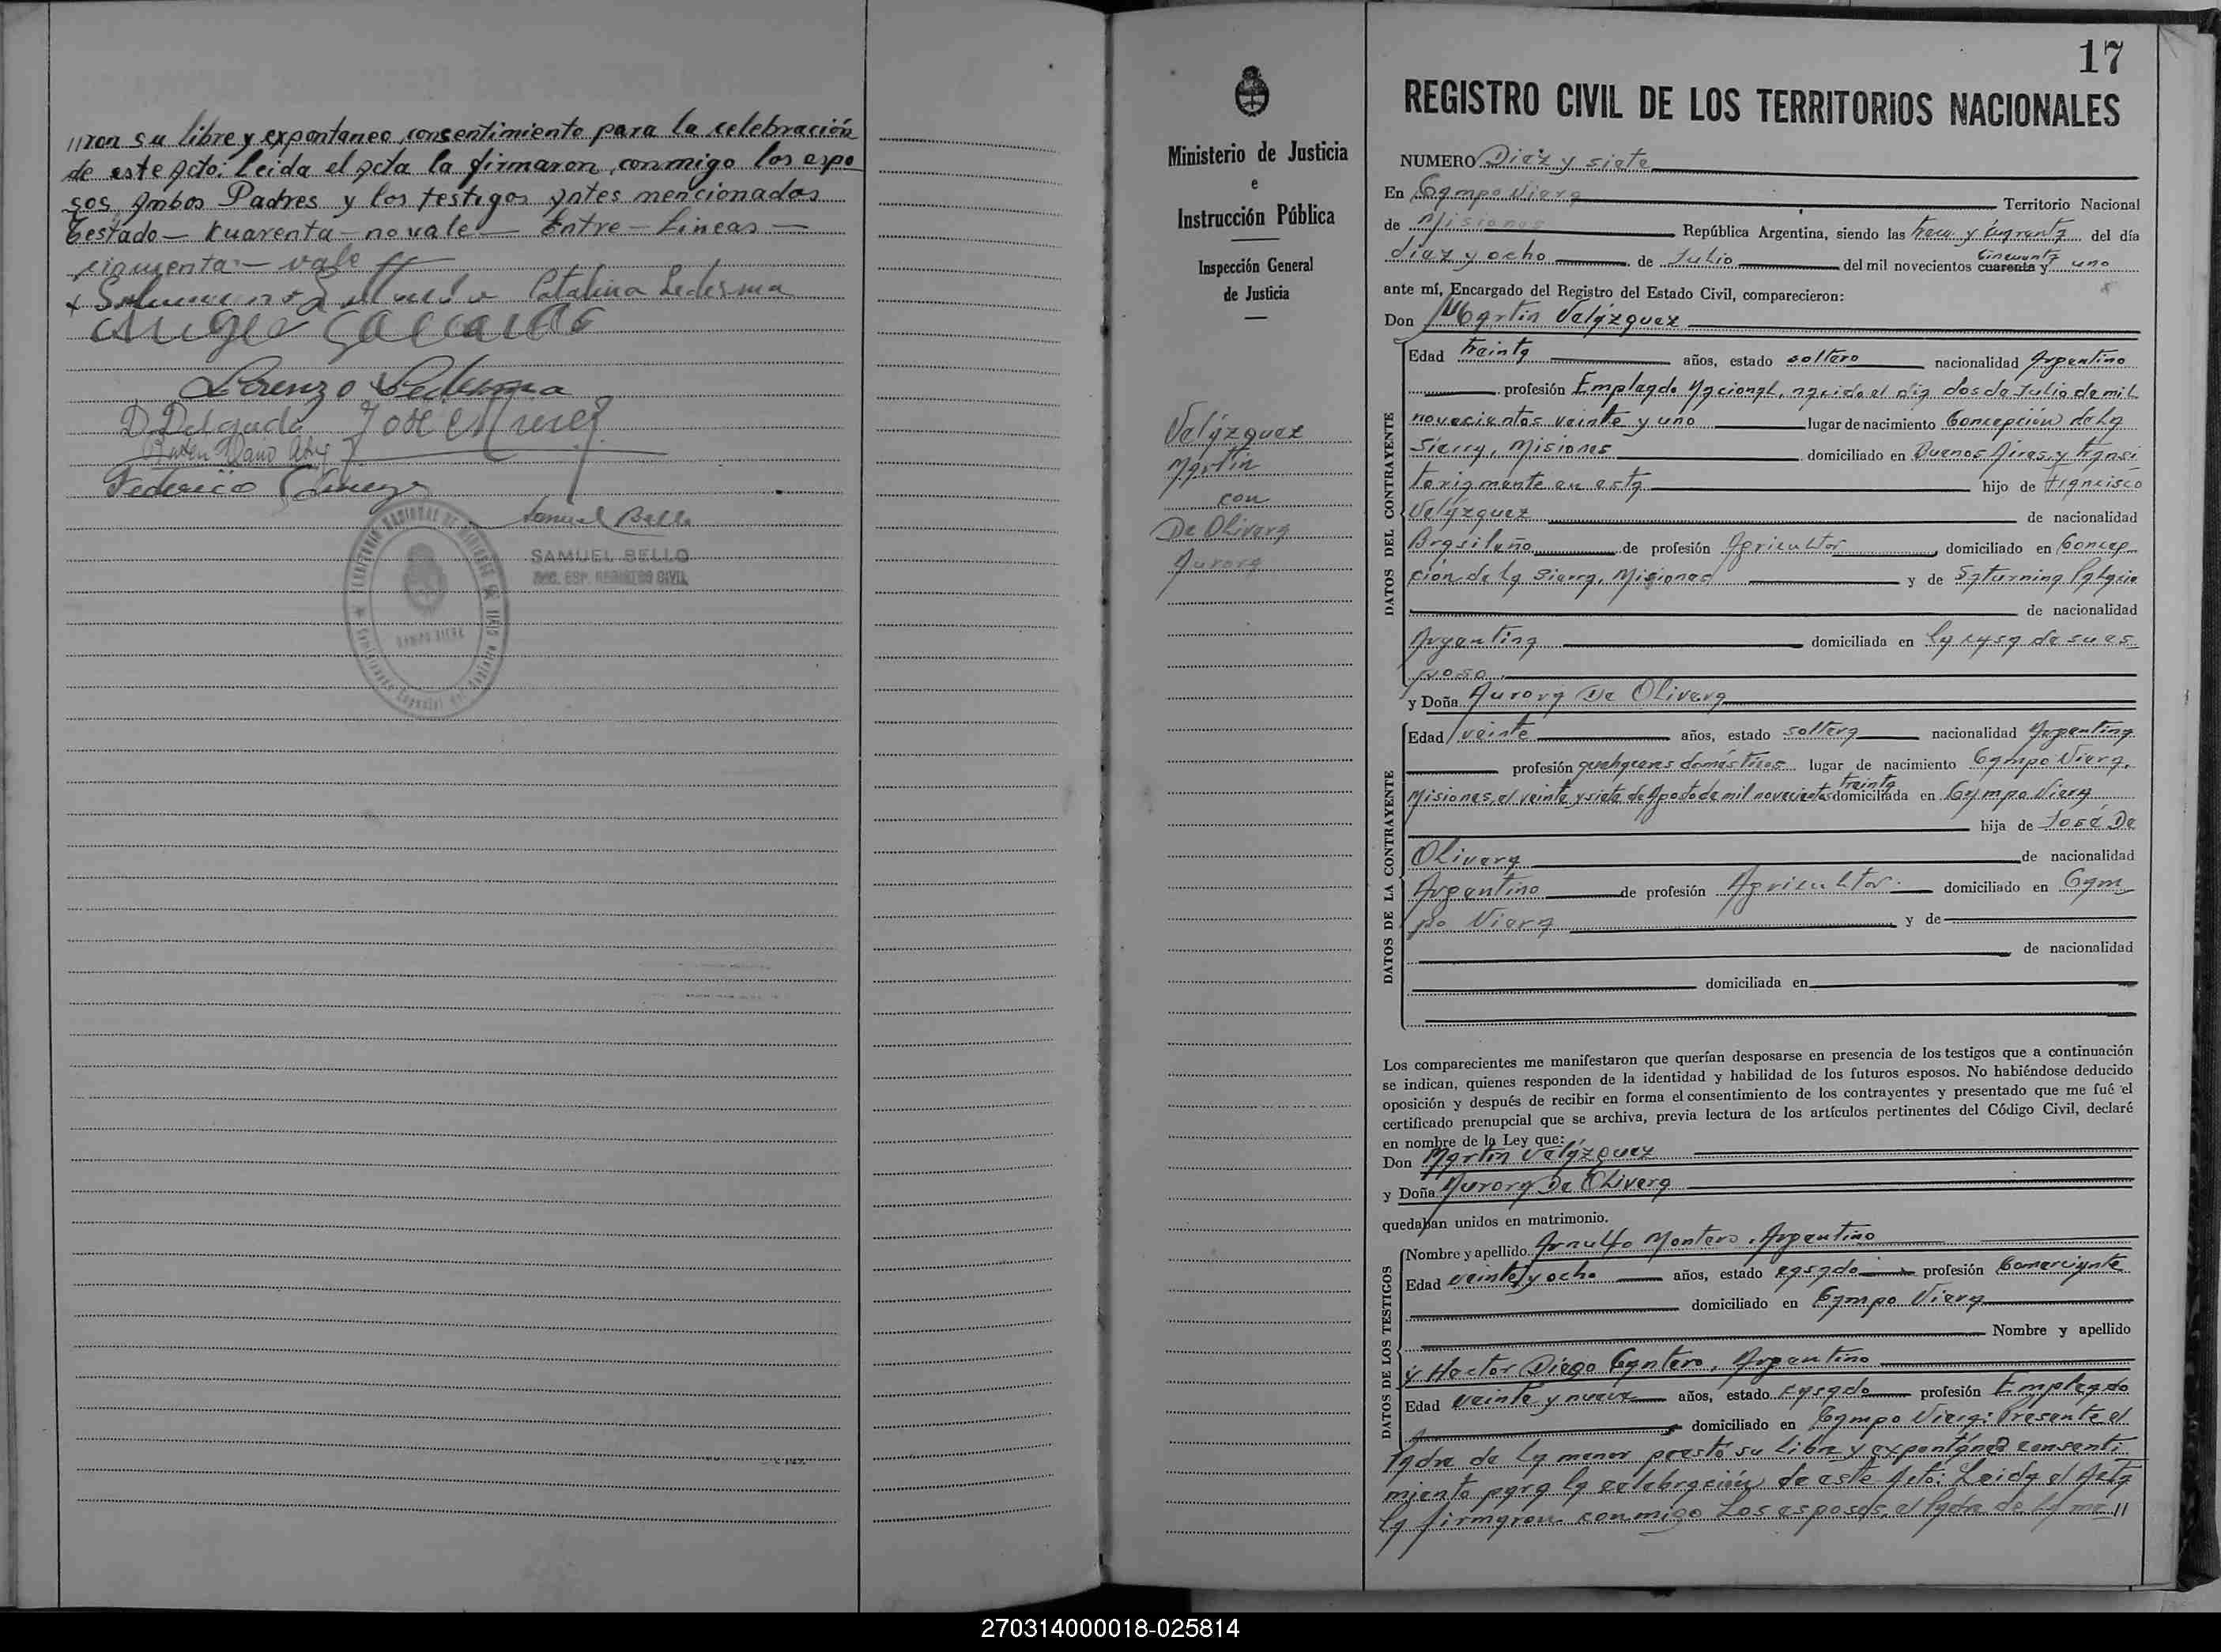 //ron su libre y expontaneo consentimiento para la celebración
de este Acto: leida el acta la firmaron, conmigo los espo
sos, Ambos Padres y los testigos antes mencionados
Testado - Kuarenta - no vale - Entre - Lineas -
cinquenta - vale
Catalina Ledesma
Lorenzo Ledesma
D. Delgado José
Federico
Samuel Bello
SAMUEL BELLO
ENC. ESP. REGISTRO CIVIL
17
Ministerio de Justicia
e
Instrucción Pública
Inspección General
de Justicia
Velázquez
Martin
con
De Olivera
Aurora
REGISTRO CIVIL DE LOS TERRITORIOS NACIONALES
NUMERO Diez y siete
En Campo Viera Territorio Nacional
de Misiones República Argentina, siendo las trece y cuarenta del día
diez y ocho de Julio del mil novecientos cuarenta y cincuenta uno
ante mí, Encargado del Registro del Estado Civil, comparecieron:
Don Martin Velázquez
DATOS DEL CONTRAYENTE
Edad treinta años, estado soltero nacionalidad Argentino
profesión Empleado Nacional, nacido el dia dos de Julio de mil
novecientos veinte y uno lugar de nacimiento Concepción de la
Sierra, Misiones domiciliado en Buenos Aires y transi
toriamente en esta hijo de Francisco
Velázquez de nacionalidad
Brasileño de profesión Agricultor domiciliado en Concep
ción de la Sierra, Misiones y de Saturnina Palacio
de nacionalidad
Argentina domiciliada en la casa de su es
poso.
y Doña Aurora De Olivera
DATOS DE LA CONTRAYENTE
Edad veinte años, estado soltera nacionalidad Argentina
profesión quehaceres domésticos lugar de nacimiento Campo Viera,
Misiones, el veinte y siete de Agosto de mil novecientos treinta domiciliada en Campo Viera
hija de José De
Olivera de nacionalidad
Argentino de profesión Agricultor domiciliado en Cam
po Viera y de
de nacionalidad
domiciliada en
Los comparecientes me manifestaron que querían desposarse en presencia de los testigos que a continuación
se indican, quienes responden de la identidad y habilidad de los futuros esposos. No habiéndose deducido
oposición y después de recibir en forma el consentimiento de los contrayentes y presentado que me fué el
certificado prenupcial que se archiva, previa lectura de los artículos pertinentes del Código Civil, declaré
en nombre de la Ley que:
Don Martin Velázquez
y Doña Aurora De Olivera
quedaban unidos en matrimonio.
DATOS DE LOS TESTIGOS
Nombre y apellido Arnulfo Montero, Argentino
Edad veinte y ocho años, estado casado profesión Comerciante
domiciliado en Campo Viera
Nombre y apellido
y Hector Diego Cantero, Argentino
Edad veinte y nueve años, estado casado profesión Empleado
domiciliado en Campo Viera: Presente el
Padre de la menor prestó su libre y expontáneo consenti
miento para la celebración de este Acto: Leida el Acta
la firmaron conmigo Los esposos, el Padre de la me //
270314000018-025814